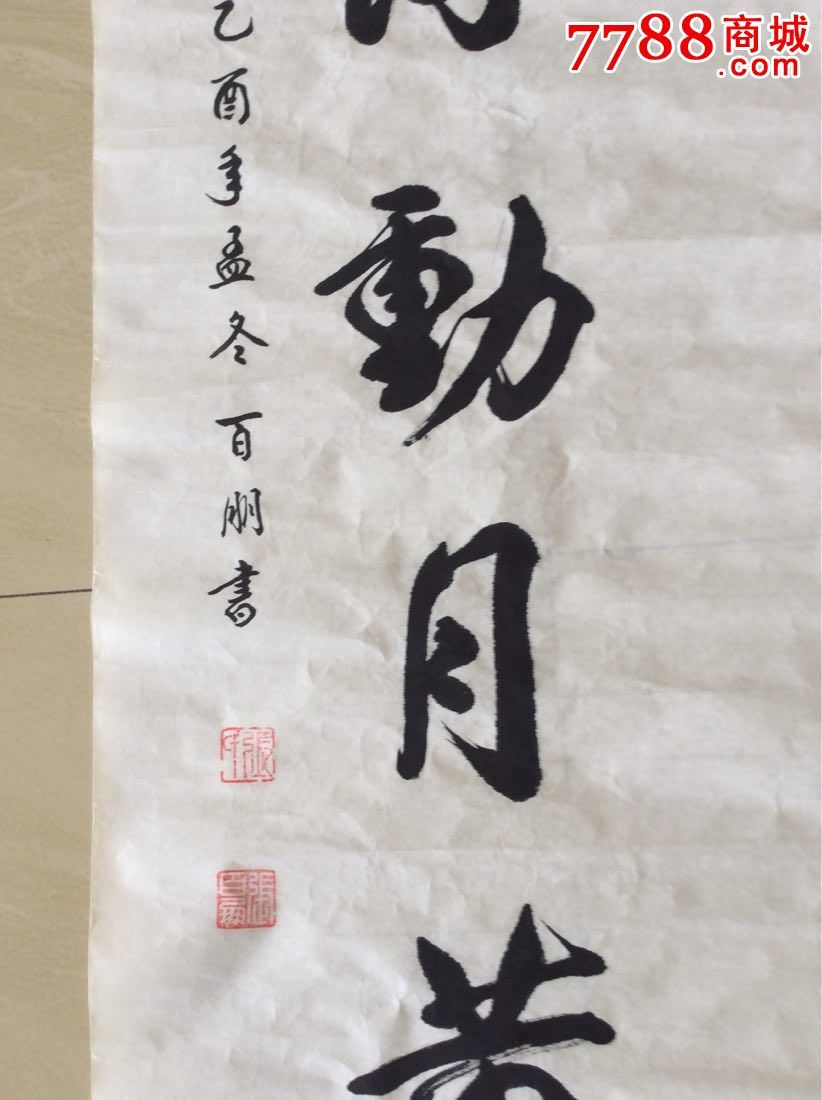 7788商城
.com
動月黄
乙酉年孟冬 百朋書